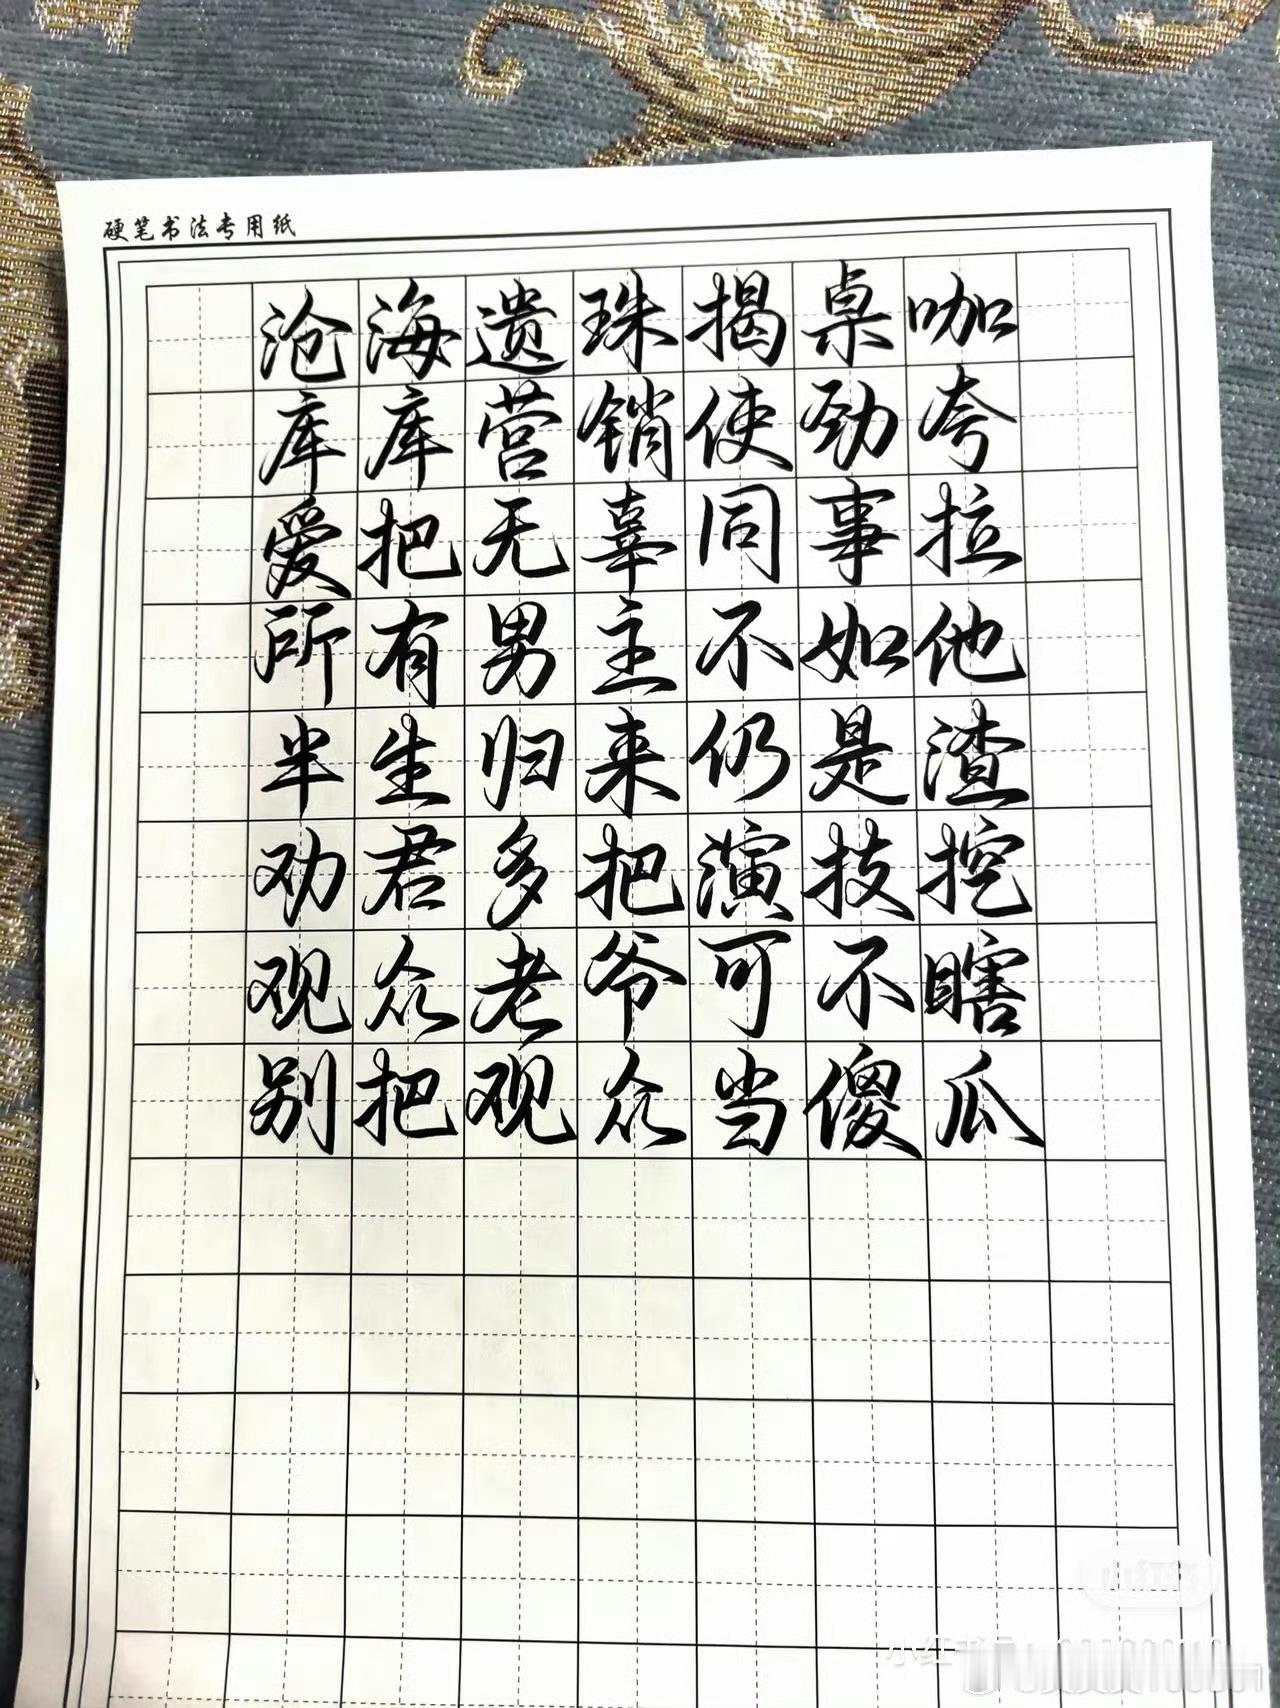 硬笔书法专用纸
沧海遗珠揭桌咖
库库营销使劲夸
爱把无辜同事拉
所有男主不如他
半生归来仍是渣
劝君多把演技挖
观众老爷可不瞎
别把观众当傻瓜
小红书